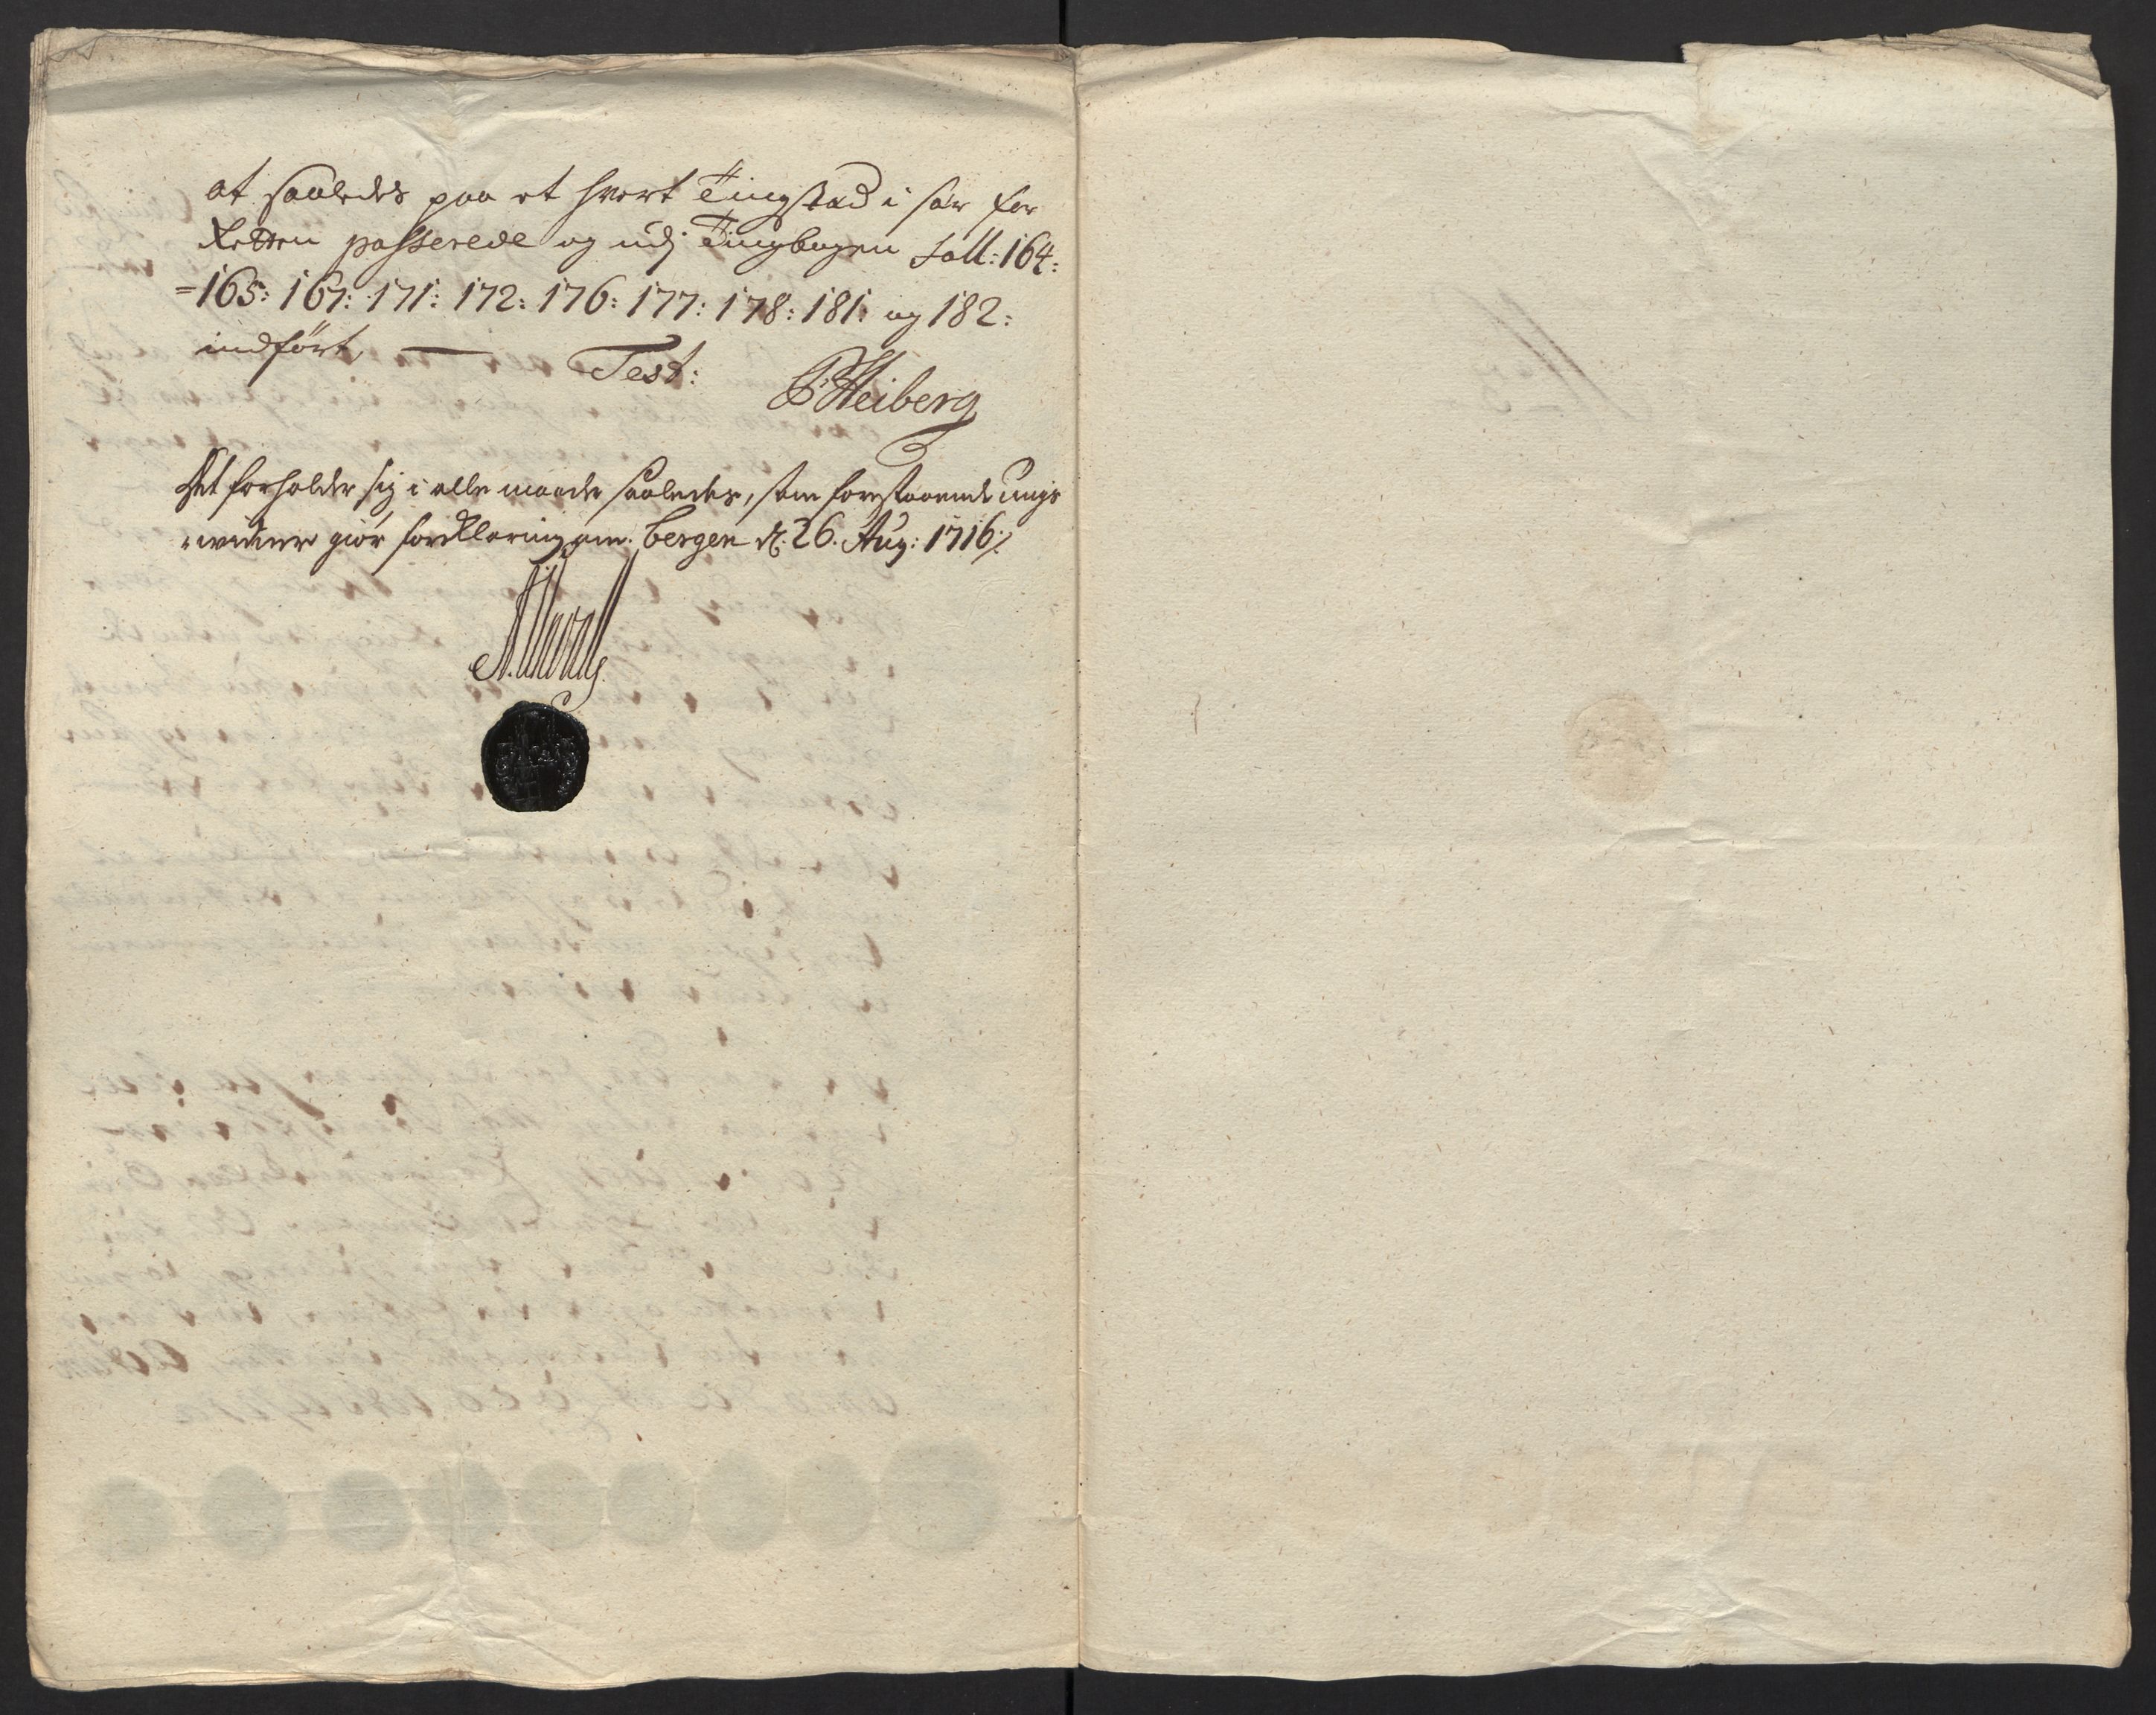 at saaledes paa et hvert Tingstæd i sær for
Retten passerede og udj Tingbogen foll: 164:
=165: 167: 171: 172: 176: 177: 178: 181: og 182:
indført, — Test:
Heiberg
Det forholder sig i alle maade saaledes, som forestaaende tings
widner giør forklaring om. Bergen d. 26. Aug: 1716